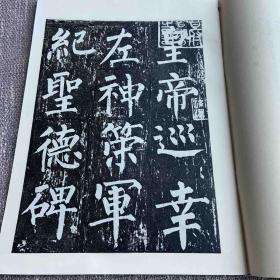 皇帝巡幸
左神策軍
紀聖德碑